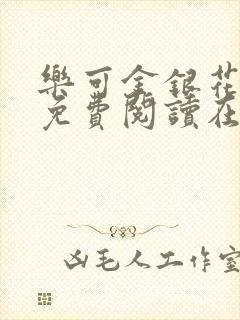 樂可金銀花
免費閱讀在
凶毛人工作室